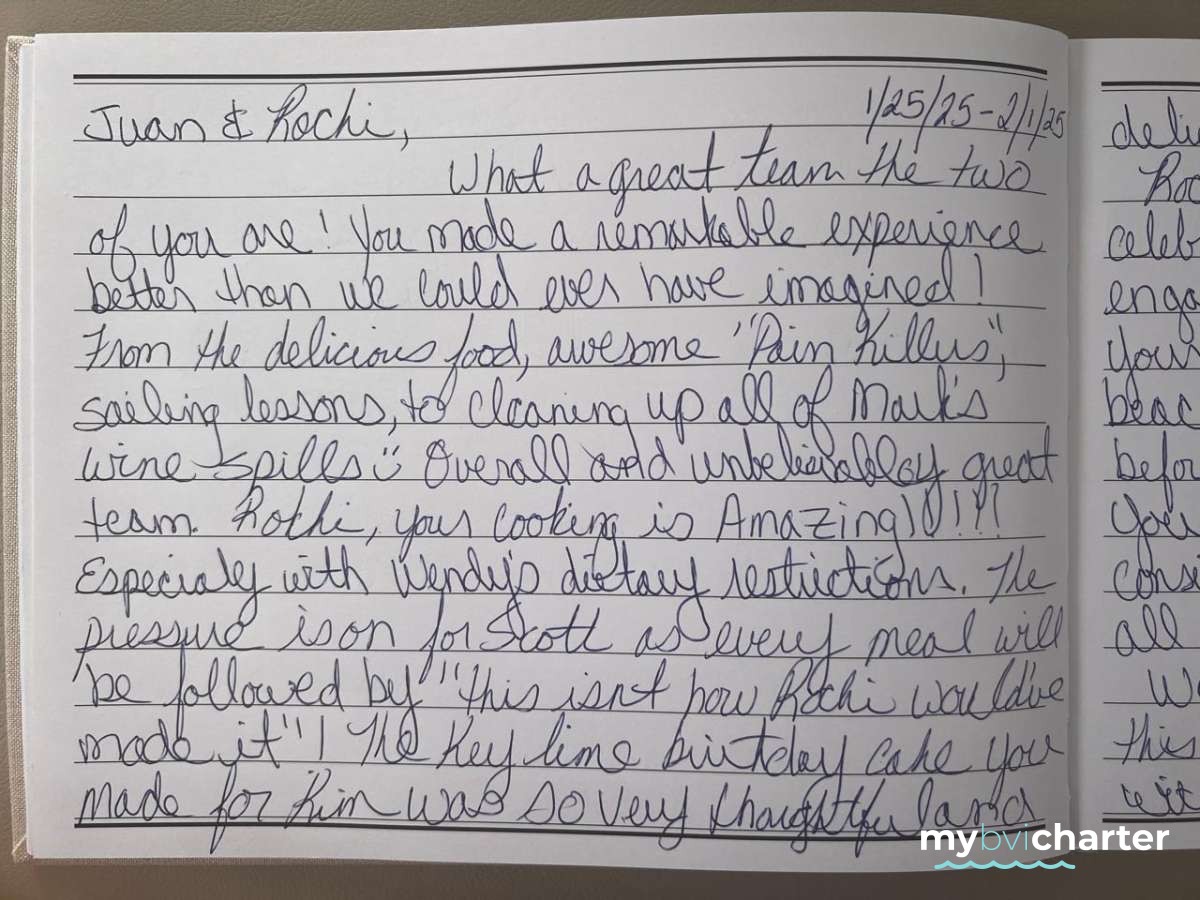 Juan & Rochi,
1/25/25 - 2/1/25
What a great team the two
of you are! You made a remarkable experience
better than we could ever have imagined!
From the delicious food, awesome "Pain Killers",
sailing lessons, to cleaning up all of Mark's
wine spills Overall and unbelievabley great
team. Rochi, your cooking is Amazing!!!!!
Especialy with Wendy's dietary restrictions. The
pressure is on for Scott as every meal will
be followed by "this isnt how Rochi would've
made it"! The Key lime birthday cake you
made for Kim was so very thoughtful and
deli
Roc
celeb
enga
your
beac
befor
you
cons
all
We
this
wit
mybvicharter